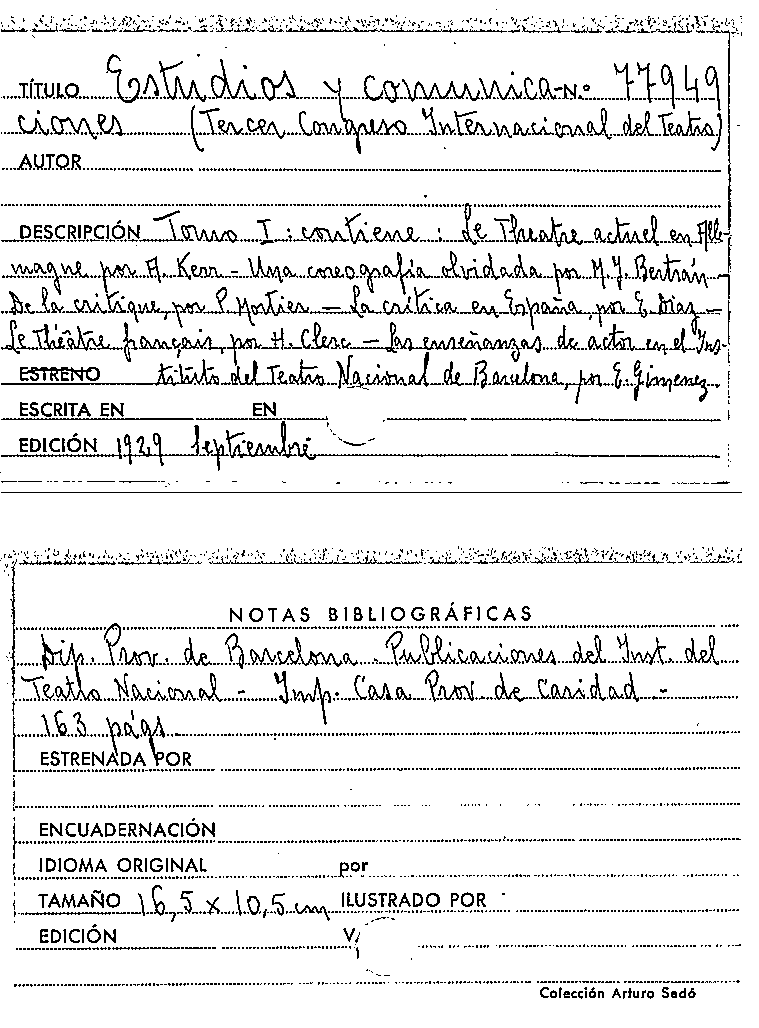 TÍTULO Estudios y comunica- N.º 77949
ciones (Tercer Congreso Internacional del Teatro)
AUTOR
DESCRIPCIÓN Tomo I: contiene: Le Theatre actuel en Alle-
magne por A. Kerr - Una coreografía olvidada por M.J. Bertrán -
De la critique, por P. Mortier - La crítica en España, por E. Diaz -
Le Théâtre français, por H. Clerc - Las enseñanzas de actor en el Ins-
ESTRENO tituto del Teatro Nacional de Barcelona, por E. Gimenez.
ESCRITA EN EN
EDICIÓN 1929 Septiembre
NOTAS BIBLIOGRÁFICAS
Dip. Prov. de Barcelona. Publicaciones del Inst. del
Teatro Nacional - Imp. Casa Prov. de Caridad -
163 págs.
ESTRENADA POR
ENCUADERNACIÓN
IDIOMA ORIGINAL por
TAMAÑO 16,5 x 10,5 cm ILUSTRADO POR
EDICIÓN V/
Colección Arturo Sedó